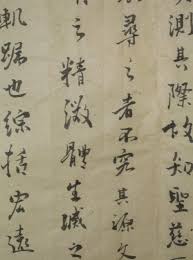 測其際故知聖慈
尋之者不究其源文
有之精微體生滅之
軌躅也綜括宏遠